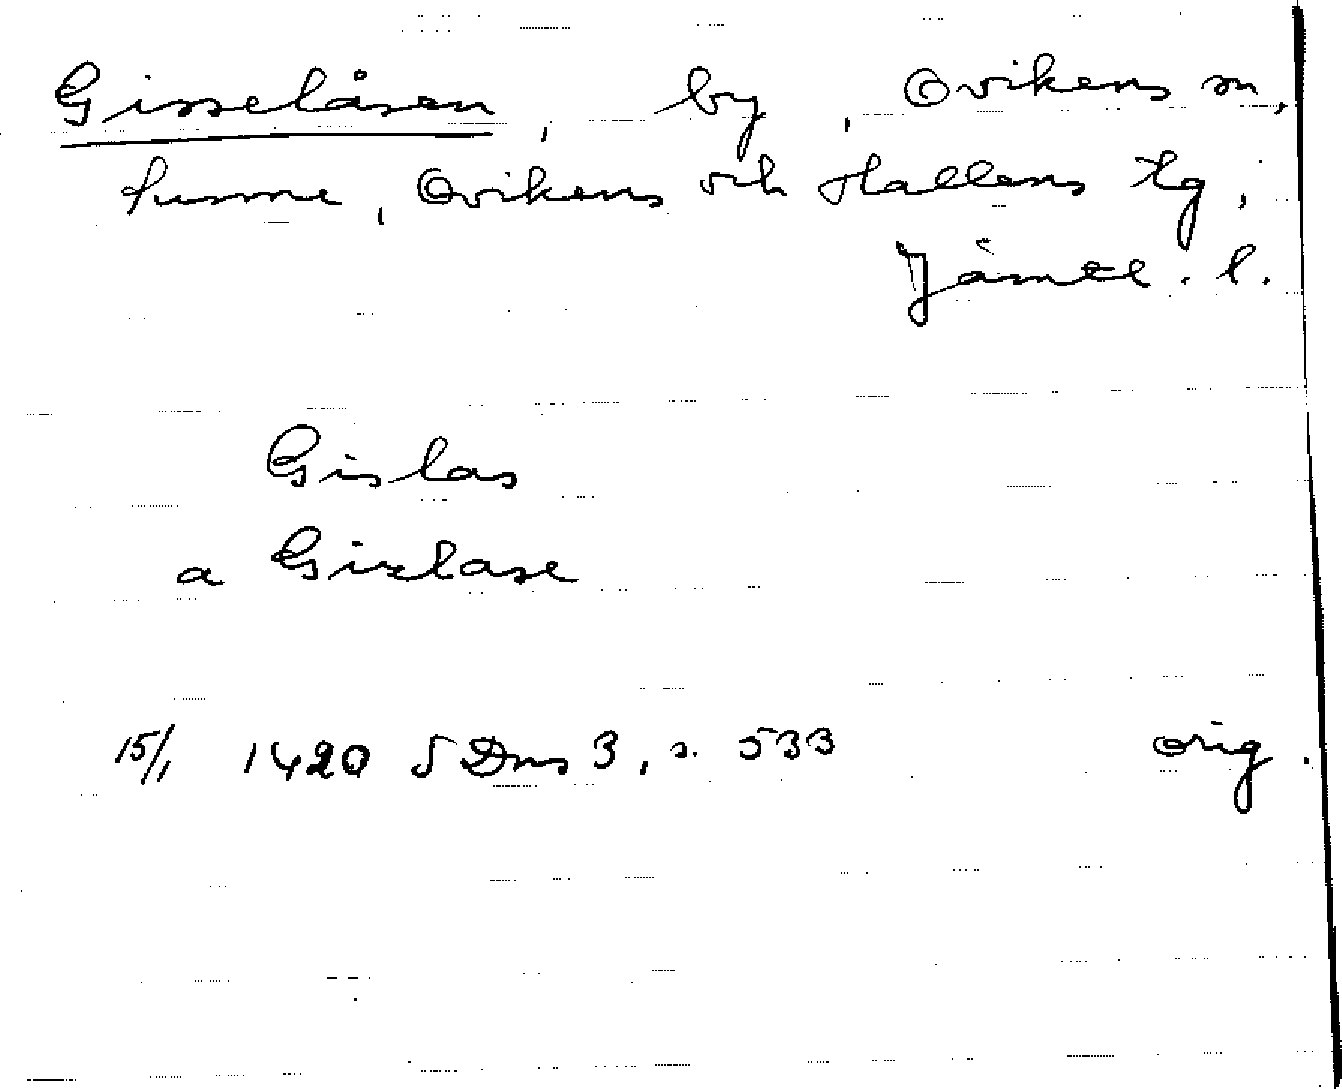 Gisselåsen, by, Ovikens sn,
Sunne, Ovikens och Hallens tg,
Jämtl. l.
Gislas
a Gizlase
15/1 1420 SDns 3, s. 533 orig.